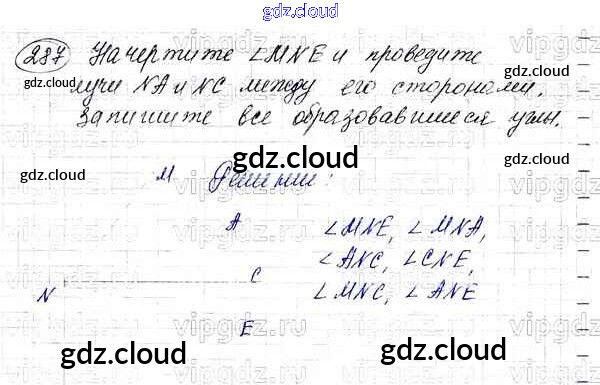 gdz.cloud
287 Начертите ∠MNE и проведите
лучи NA и NC между его сторонами.
Запишите все образовавшиеся углы.
gdz.cloud gdz.cloud
M Решение:
A ∠MNE, ∠MNA,
gdz.cloud
C ∠ANC, ∠CNE,
N ∠MNC, ∠ANE
E
gdz.cloud gdz.cloud